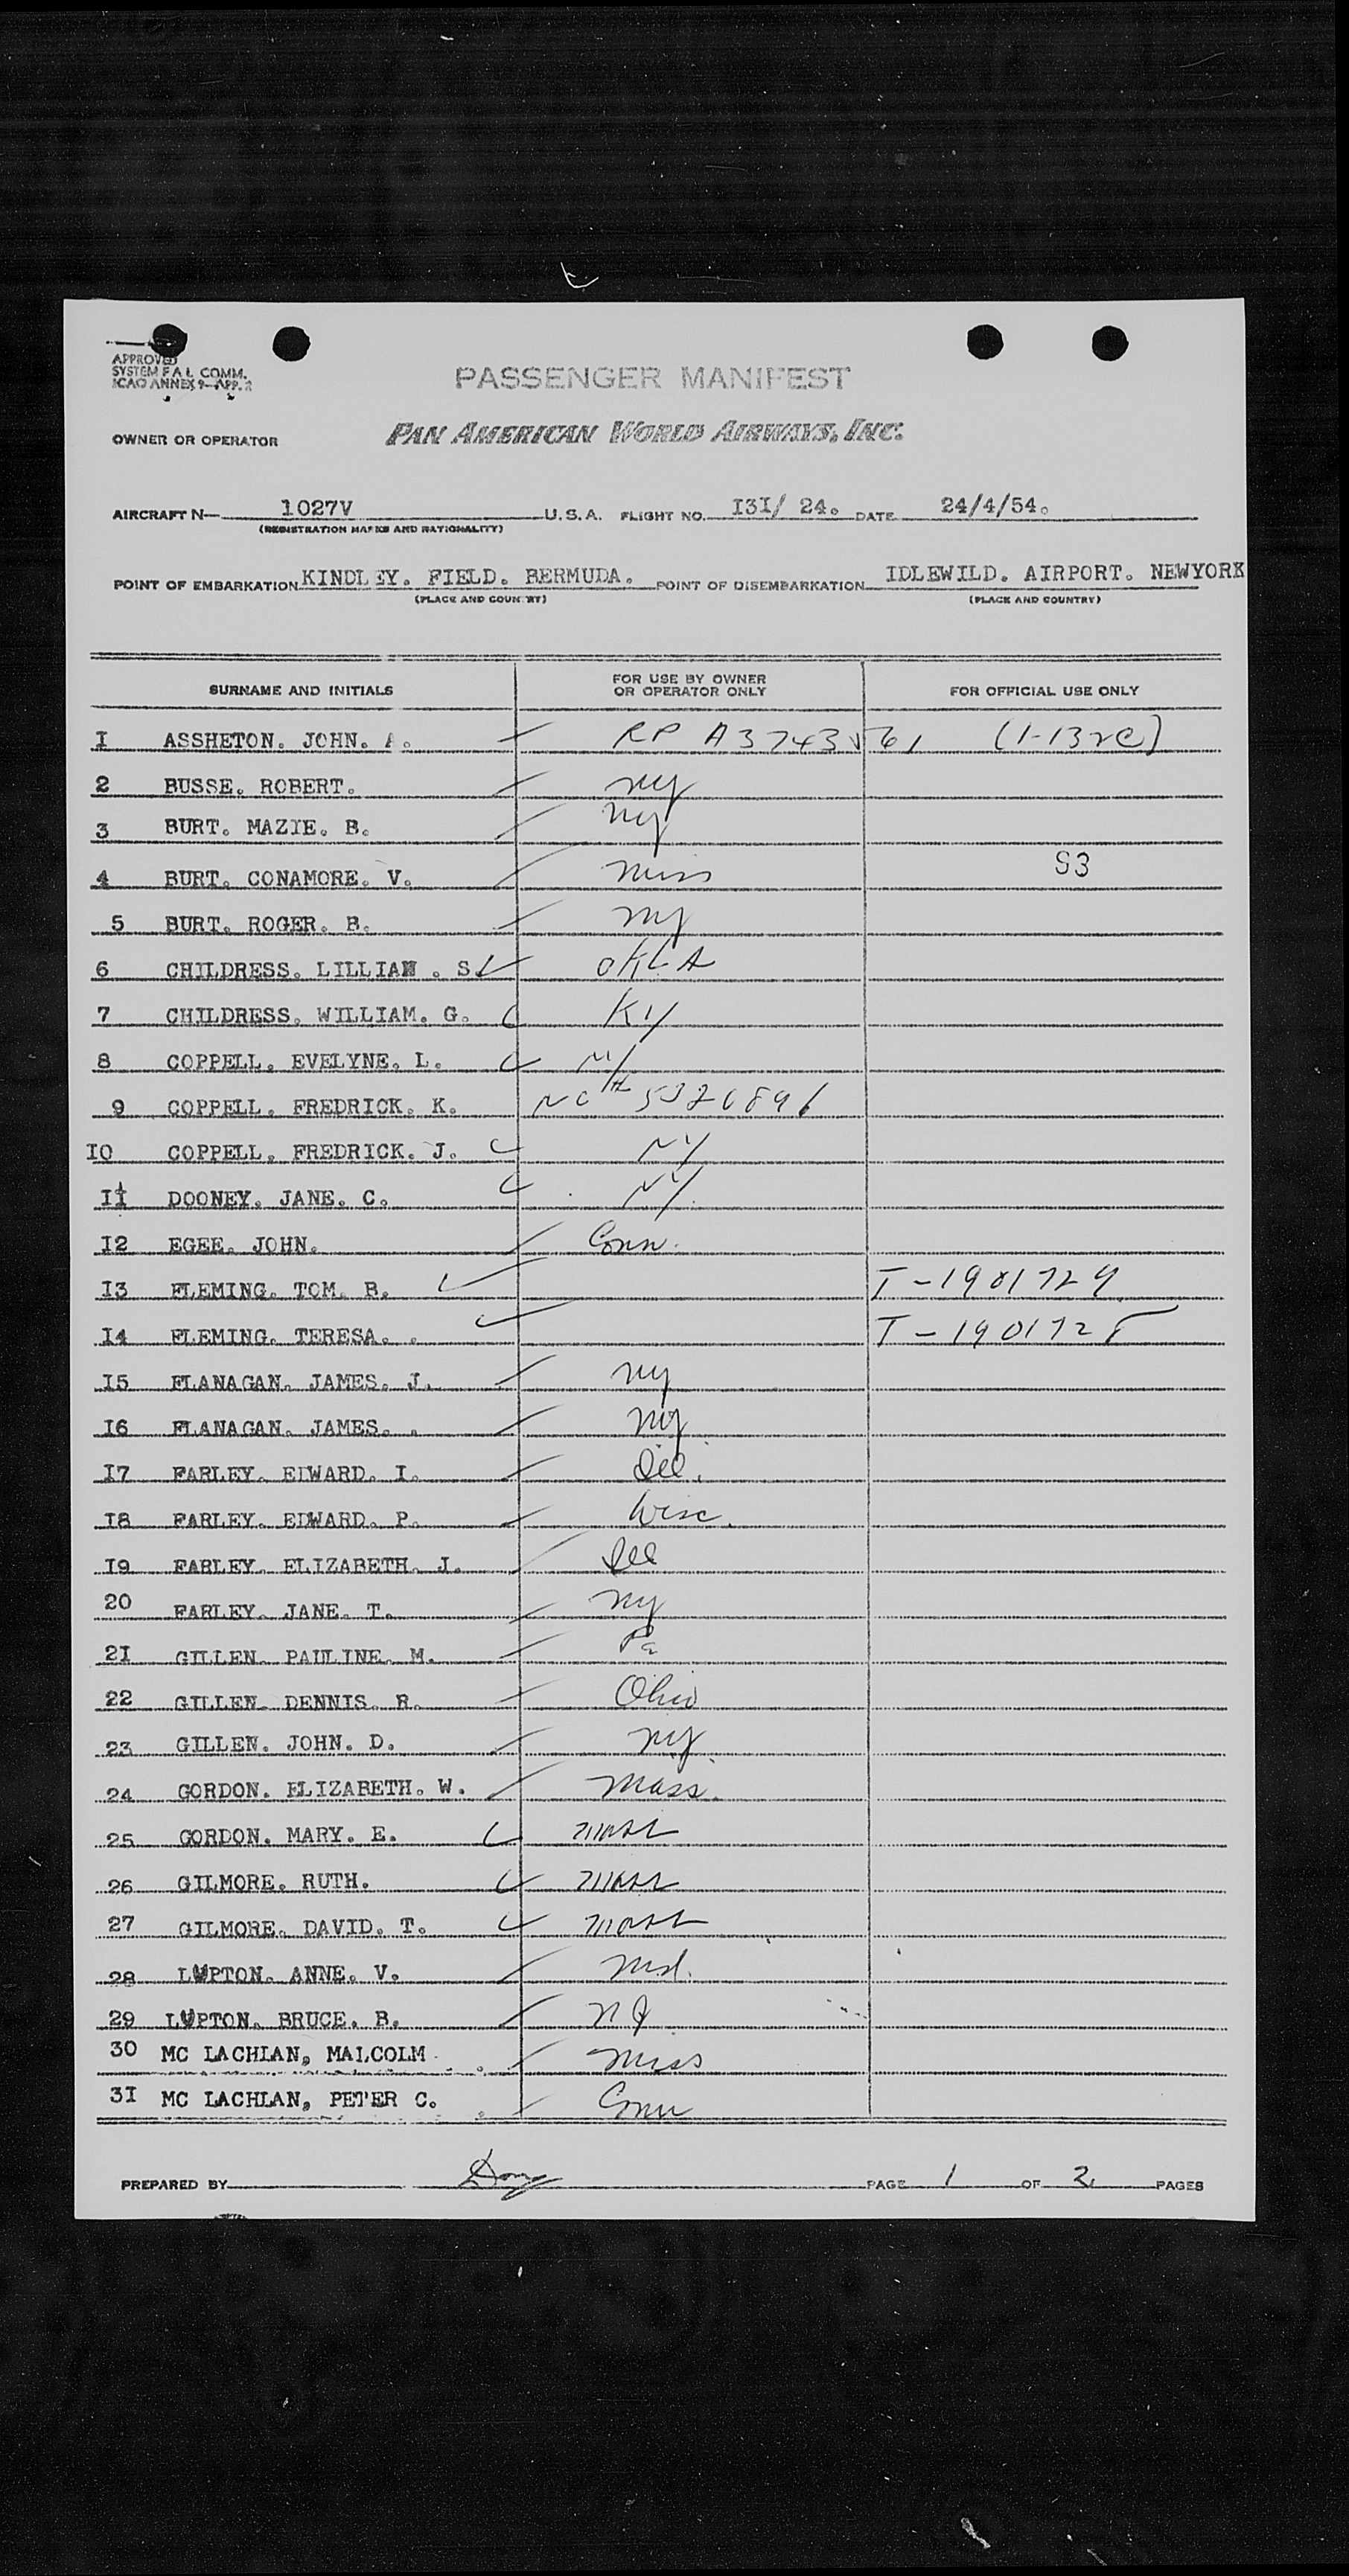 APPROVED
SYSTEM F A L COMM.
ICAO ANNEX 9—APP. 2
PASSENGER MANIFEST
OWNER OR OPERATOR PAN AMERICAN WORLD AIRWAYS, INC.
AIRCRAFT N— 1027V U.S.A. FLIGHT NO. I3I/ 24. DATE 24/4/54.
(REGISTRATION MARKS AND NATIONALITY)
POINT OF EMBARKATION KINDLEY. FIELD. BERMUDA. POINT OF DISEMBARKATION IDLEWILD. AIRPORT. NEWYORK
(PLACE AND COUNTRY) (PLACE AND COUNTRY)
SURNAME AND INITIALS FOR USE BY OWNER OR OPERATOR ONLY FOR OFFICIAL USE ONLY
I ASSHETON. JOHN. A. RP
2 BUSSE. ROBERT. ny
3 BURT. MAZIE. B. ny
4 BURT. CONAMORE. V. Miss S3
5 BURT. ROGER. B. ny
6 CHILDRESS. LILLIAN . S. OKLA
7 CHILDRESS. WILLIAM. G. Ky
8 COPPELL. EVELYNE. L. NY
9 COPPELL. FREDRICK. K. NC# 5326896
I0 COPPELL. FREDRICK. J. NY
I1 DOONEY. JANE. C. NY
I2 EGEE. JOHN. Conn.
I3 FLEMING. TOM. B. T-1901729
I4 FLEMING. TERESA. . T-1901728
I5 FLANAGAN. JAMES. J. ny
I6 FLANAGAN. JAMES. . ny
I7 FARLEY. EDWARD. I. Ill.
I8 FARLEY. EDWARD. P. Wisc.
I9 FARLEY. ELIZABETH. J. Ill
20 FARLEY. JANE. T. ny
2I GILLEN. PAULINE. M. Pa
22 GILLEN. DENNIS. R. Ohio
23 GILLEN. JOHN. D. ny
24 GORDON. ELIZABETH. W. Mass.
25 GORDON. MARY. E. Mass
26 GILMORE. RUTH. Mass
27 GILMORE. DAVID. T. Mass
28 LUPTON. ANNE. V. Md.
29 LUPTON. BRUCE. B. NJ
30 MC LACHLAN, MALCOLM . Miss
3I MC LACHLAN, PETER C. . Conn
PREPARED BY PAGE 1 OF 2 PAGES